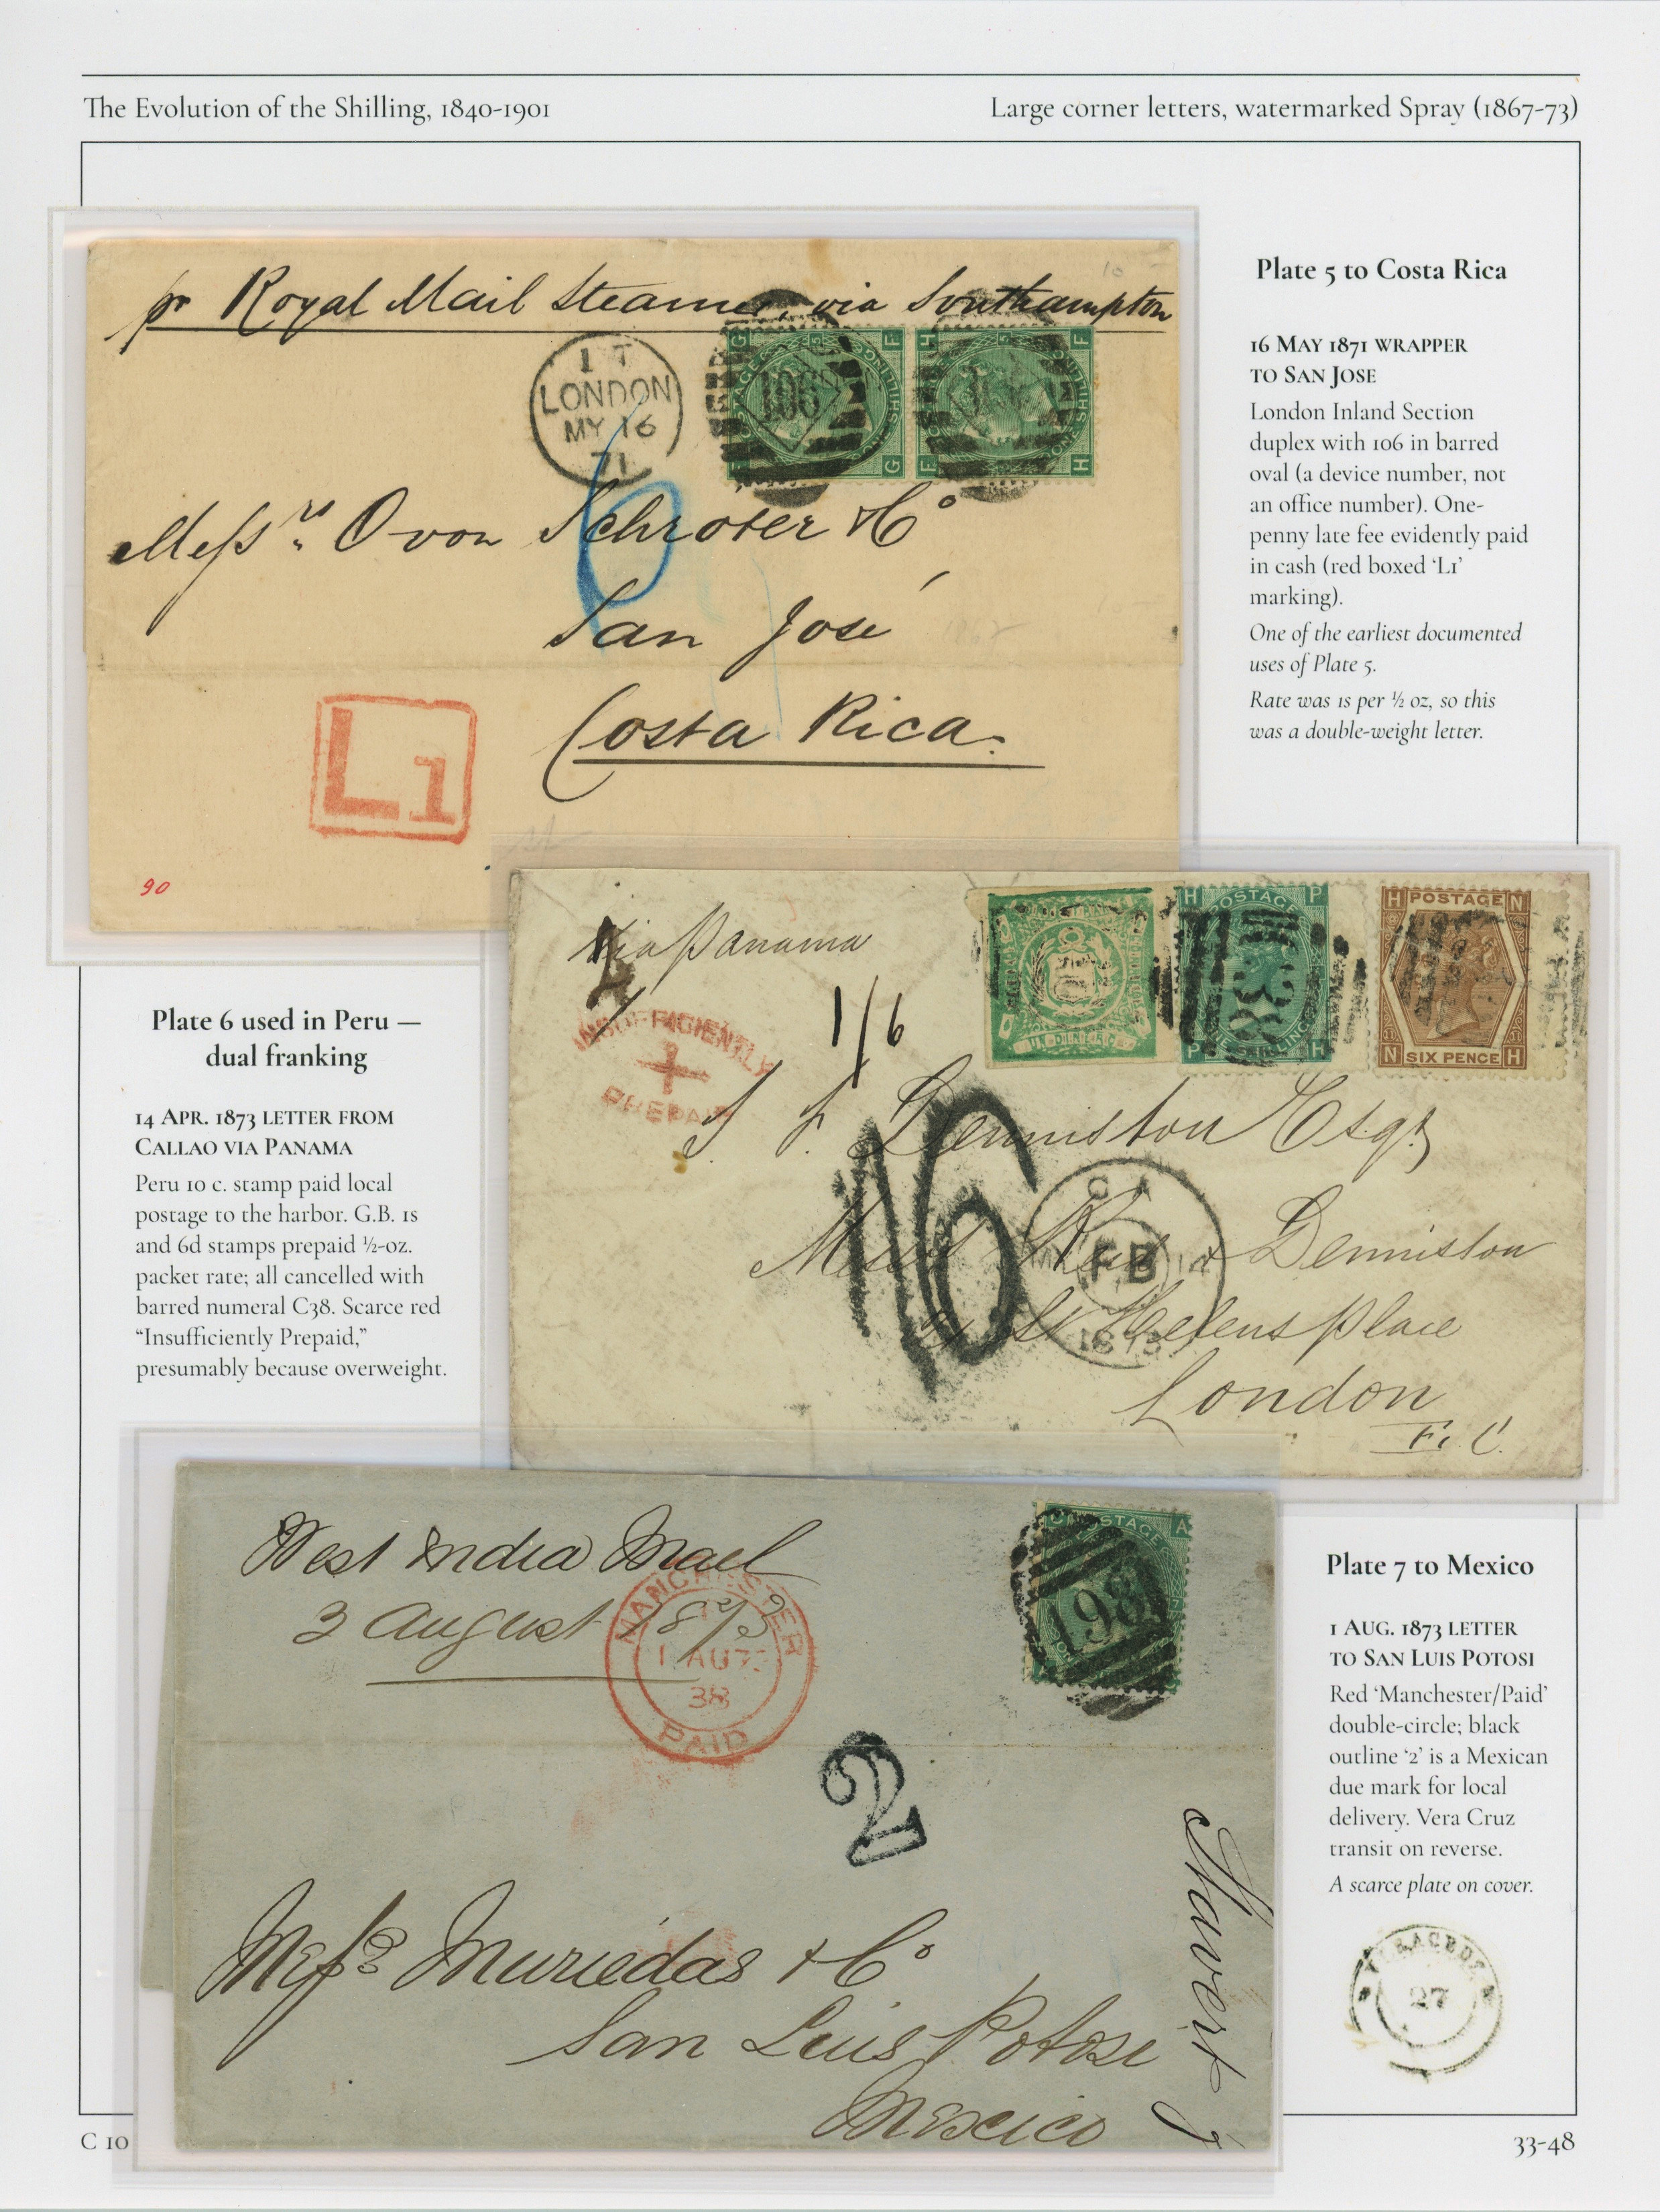 The Evolution of the Shilling, 1840-1901
Large corner letters, watermarked Spray (1867-73)
pr Royal Mail Steamer, via Southampton
1 T
LONDON
MY 16
71
G F
106
G
H F
E H
Messrs. O von Schroter & Co
San José
Costa Rica.
L1
90
Plate 5 to Costa Rica
16 MAY 1871 WRAPPER
TO SAN JOSE
London Inland Section
duplex with 106 in barred
oval (a device number, not
an office number). One-
penny late fee evidently paid
in cash (red boxed ‘L1’
marking).
One of the earliest documented
uses of Plate 5.
Rate was 1s per ½ oz, so this
was a double-weight letter.
via Panama
1/6
INSUFFICIENTLY
PREPAID
H POSTAGE P
C38
P H
H POSTAGE N
N SIX PENCE H
Denniston Esqr
16
FB
1873
& Denniston
St Helens Place
London
E. C.
Plate 6 used in Peru —
dual franking
14 APR. 1873 LETTER FROM
CALLAO VIA PANAMA
Peru 10 c. stamp paid local
postage to the harbor. G.B. 1s
and 6d stamps prepaid ½-oz.
packet rate; all cancelled with
barred numeral C38. Scarce red
“Insufficiently Prepaid,”
presumably because overweight.
West India Mail
3 August 1873
MANCHESTER
1 AU 73
38
PAID
POSTAGE A
498
2
Messrs Muriedas & Co
San Luis Potosi
Mexico
Plate 7 to Mexico
1 AUG. 1873 LETTER
TO SAN LUIS POTOSI
Red ‘Manchester/Paid’
double-circle; black
outline ‘2’ is a Mexican
due mark for local
delivery. Vera Cruz
transit on reverse.
A scarce plate on cover.
27
C 10
33-48